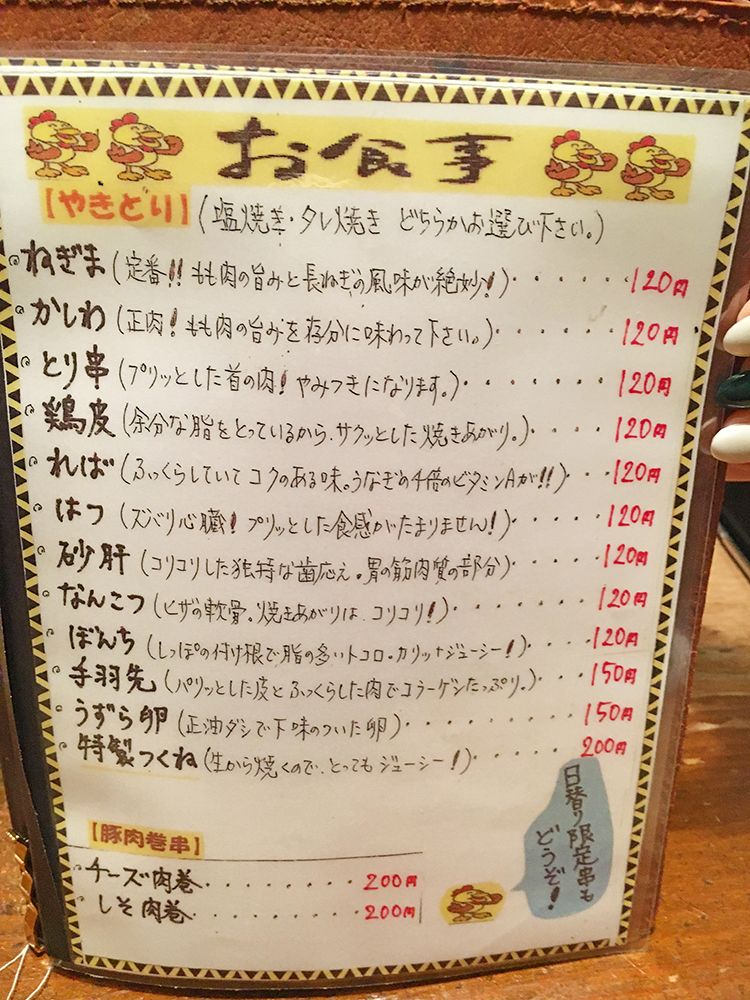 お食事
【やきどり】(塩焼き・タレ焼き どちらかお選び下さい。)
ねぎま(定番!!もも肉の旨みと長ねぎの風味が絶妙!)・・・・・・120円
かしわ(正肉!もも肉の旨みを存分に味わって下さい。)・・・・・・120円
とり串(プリッとした首の肉!やみつきになります。)・・・・・・・120円
鶏皮(余分な脂をとっているから、サクッとした焼きあがり。)・・・・120円
ればー(ふっくらしていてコクのある味。うなぎの4倍のビタミンAが!!)・・・120円
はつ(ズバリ心臓!プリッとした食感がたまりません!)・・・・・・120円
砂肝(コリコリした独特な歯応え。胃の筋肉質の部分)・・・・・・120円
なんこつ(ヒザの軟骨。焼きあがりは、コリコリ!)・・・・・・・120円
ぼんち(しっぽの付け根で脂の多いトコロ。カリッ+ジューシー!)・・・・120円
手羽先(パリッとした皮とふっくらした肉でコラーゲンたっぷり。)・・・・150円
うずら卵(正油ダシで下味のついた卵)・・・・・・・・・150円
特製つくね(生から焼くので、とってもジューシー!)・・・・・・200円
日替り限定串も
どうぞ!
【豚肉巻串】
チーズ肉巻・・・・・・・・・200円
しそ肉巻・・・・・・・・・200円